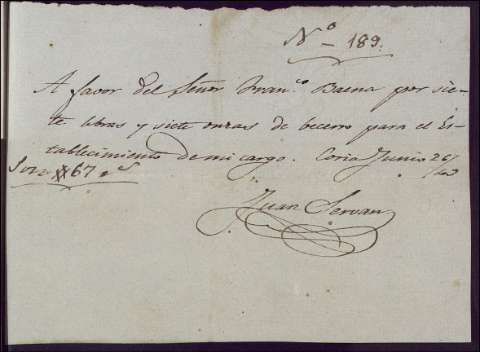 Nº 189.
A favor del Señor Franº Baena por sie-
te libras y siete onzas de becerro para el Es-
tablecimiento de mi cargo. Coria Junio 26/
67
Juan Servan